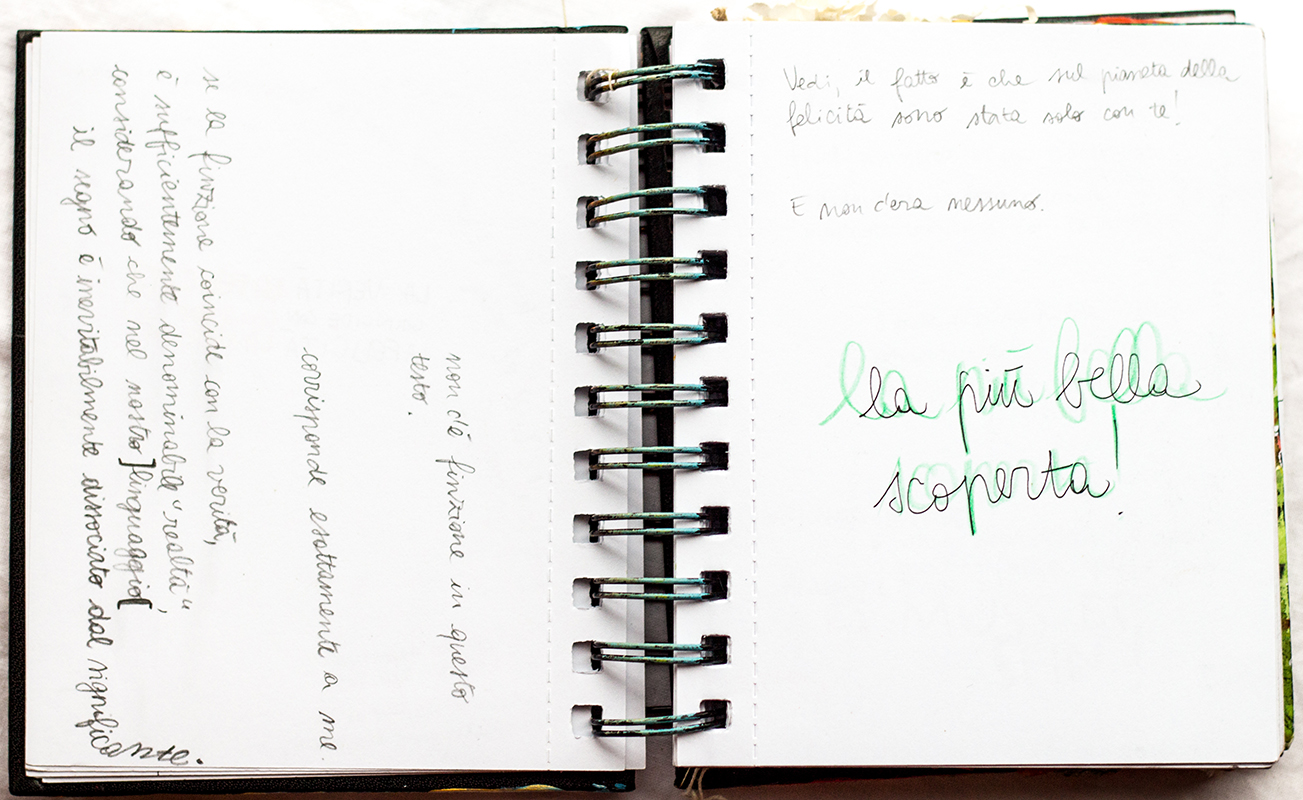 non c'è finzione in questo
testo.
corrisponde esattamente a me
se la finzione coincide con la verità,
è sufficientemente denominabile "realtà",
considerando che nel nostro ]linguaggio[
il segno è inevitabilmente dissociato dal significante.
Vedi, il fatto è che sul pianeta della
felicità sono stata solo con te!
E non c'era nessuno.
la più bella
scoperta!